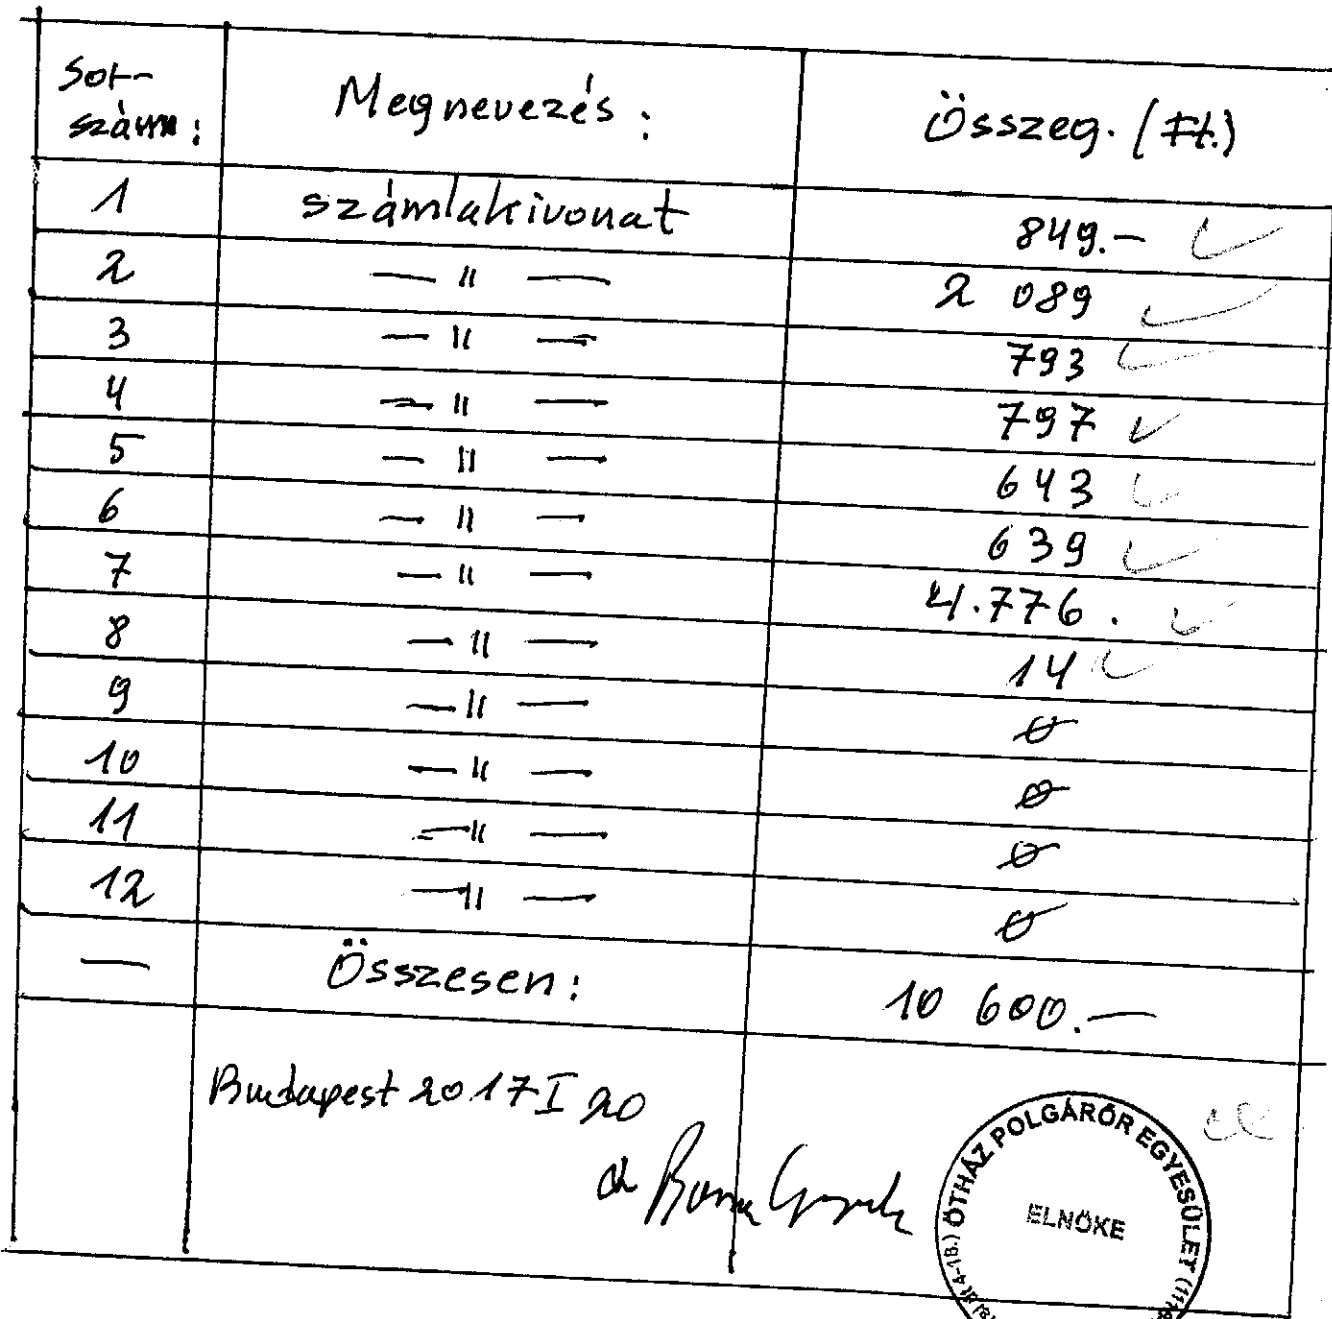 Sor- szám: Megnevezés: Összeg. (Ft.)
1 számlakivonat 849.—
2 — 〃 — 2 089
3 — 〃 — 793
4 — 〃 — 797
5 — 〃 — 643
6 — 〃 — 639
7 — 〃 — 4.776.
8 — 〃 — 14
9 — 〃 — 0
10 — 〃 — 0
11 — 〃 — 0
12 — 〃 — 0
— Összesen: 10 600.—
Budapest 2017 I 20
ÖTHÁZ POLGÁRŐR EGYESÜLET
ELNÖKE